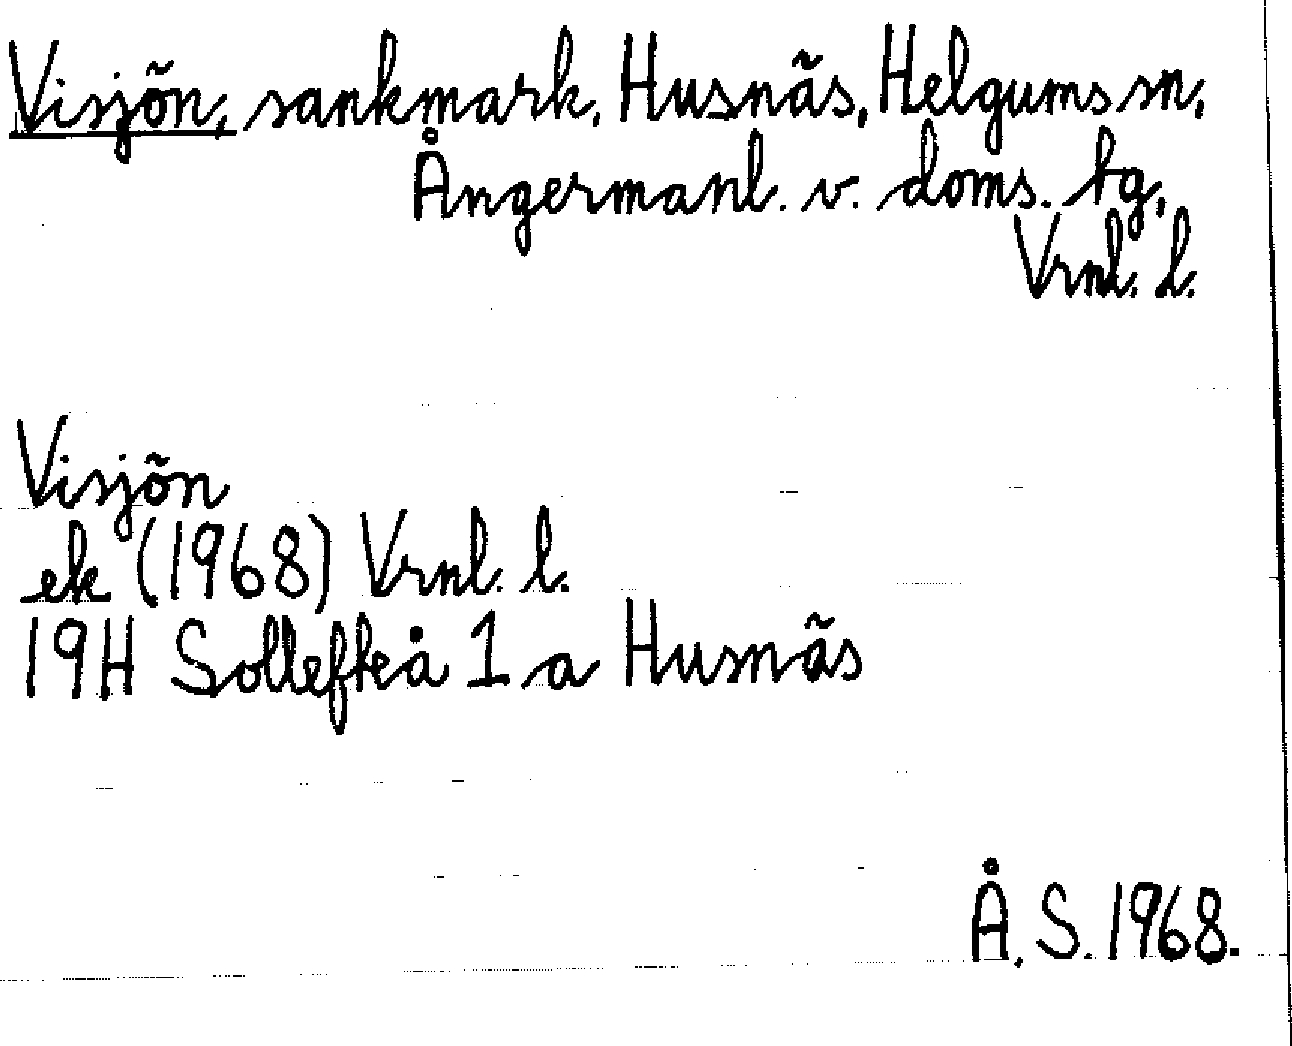 Visjön, sankmark, Husnäs, Helgums sn,
Ångermanl. v. doms. tg,
Vrnl. l.
Visjön
ek (1968) Vrnl. l.
19H Sollefteå 1 a Husnäs
Å. S. 1968.